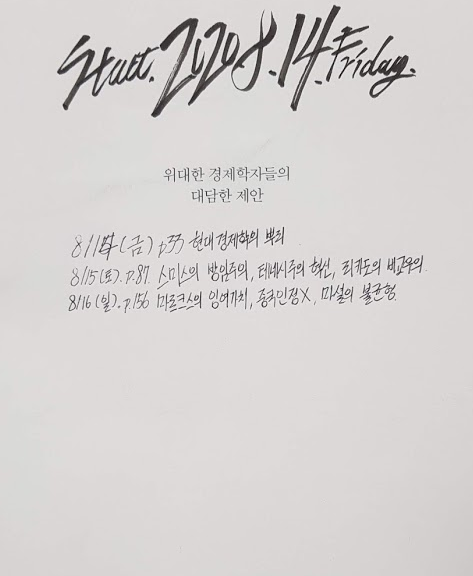 Start. 2020 8. 14. Friday.
위대한 경제학자들의
대담한 제안
8/14(금) p.33 현대 경제학의 뿌리
8/15(토). p.87. 스미스의 방임주의, 테네시주의 혁신, 리카도의 비교우위.
8/16(일). p.156 마르크스의 잉여가치, 중국인정X, 마셜의 불균형.